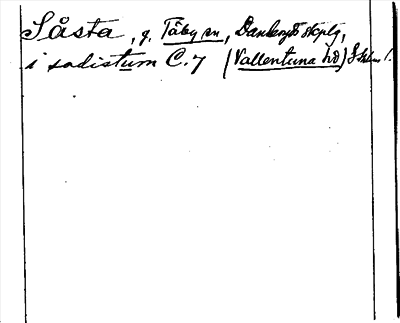 Såsta, g. Täby sn, Danderyds skplg,
i sadistum C. 7 (Vallentuna hd) S